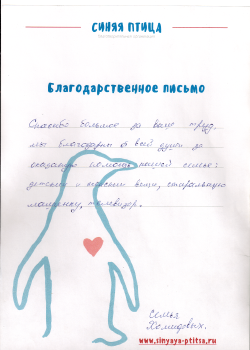 СИНЯЯ ПТИЦА
Благодарственное письмо
Спасибо большое за ваш труд,
мы благодарим от всей души за
оказанную помощь нашей семье:
детские и женские вещи, стиральную
машинку, телевизор.
Семья
www.sinyaya-ptitsa.ru